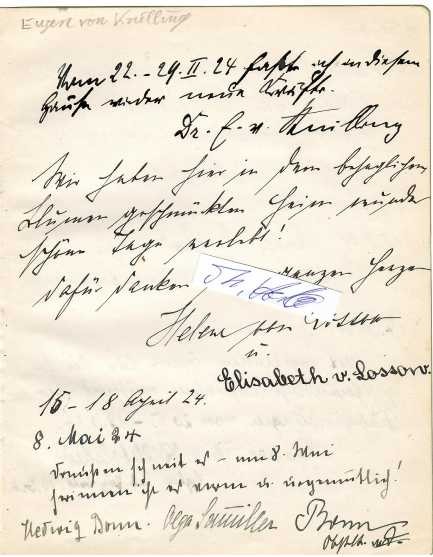 Eugen von Knilling
Vom 22. - 29. II. 24 faßte ich in diesem
Hause wieder neue Kräfte.
Dr. E. v. Knilling
Wir haben hier in dem behaglichen
Blumen geschmückten Heim wunder
schöne Tage verlebt!
Dafür danken ganzen Herzen
Helene von Lossow
u.
Elisabeth v. Lossow.
15 - 18 April 24.
8. Mai 24
Draussen schneit es - am 8. Mai
herinnen ist es warm u. urgemütlich!
Hedwig Bonn. Olga Bonn